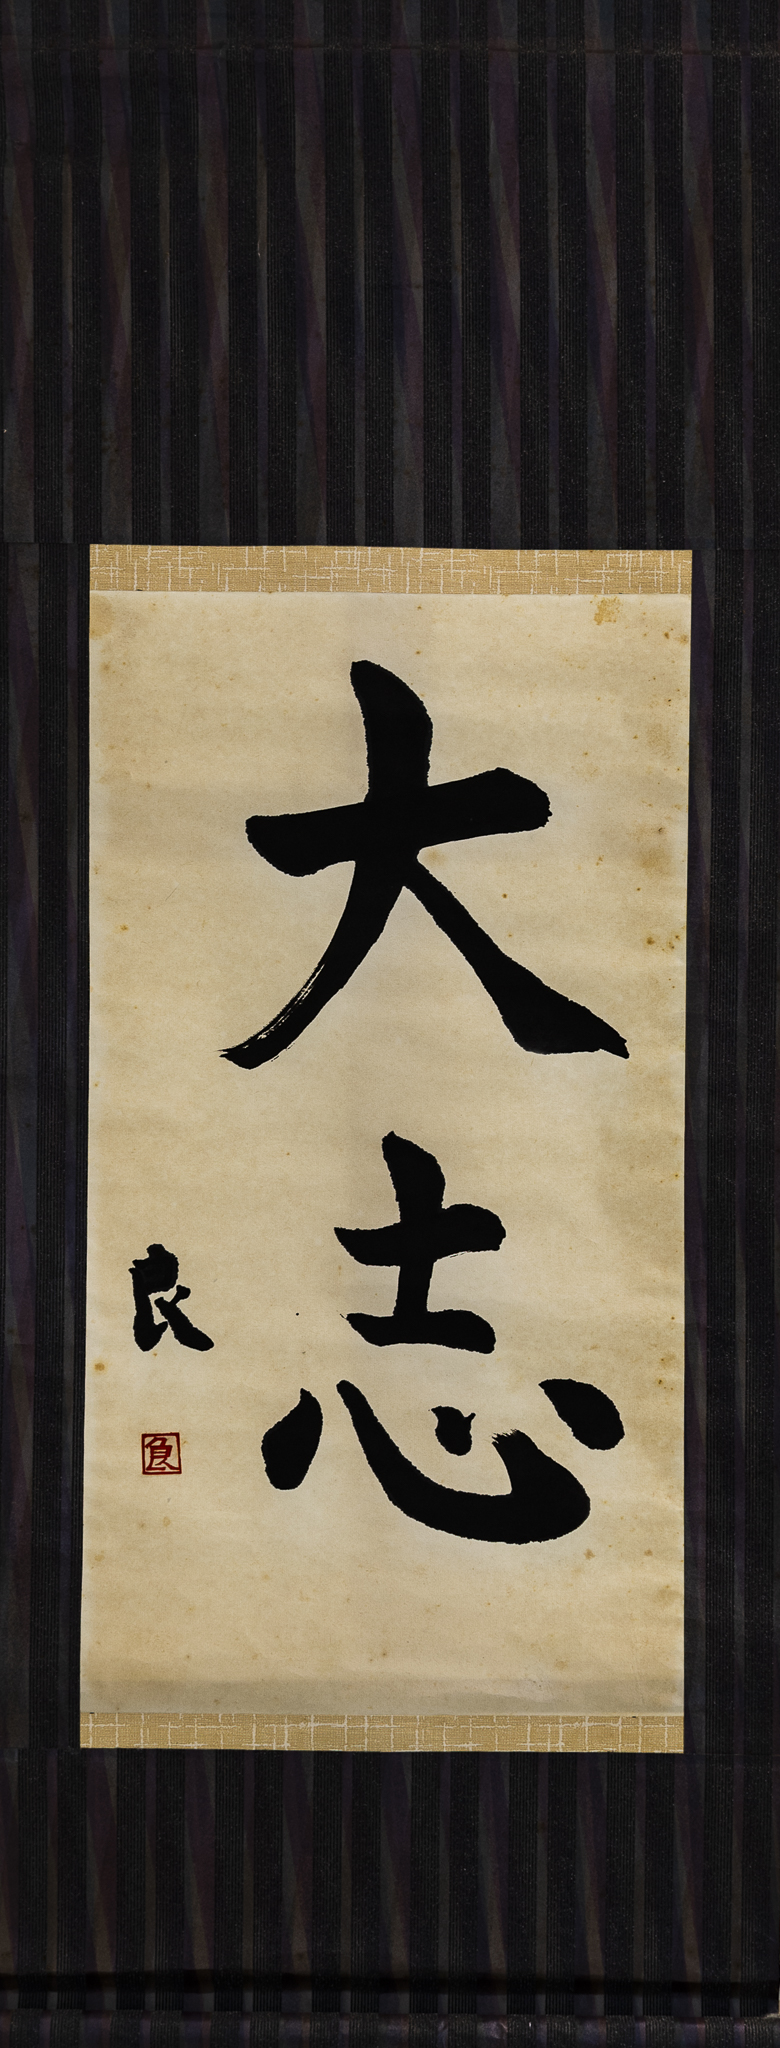 大志
良
良